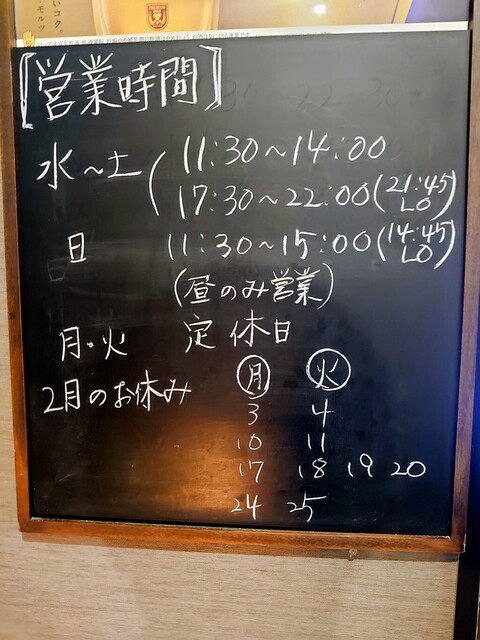 いコク。
モルツ
【営業時間】
水〜土 11:30〜14:00
17:30〜22:00(21:45 LO)
日 11:30〜15:00(14:45 LO)
(昼のみ営業)
月・火 定休日
2月のお休み 月 火
3 4
10 11
17 18 19 20
24 25